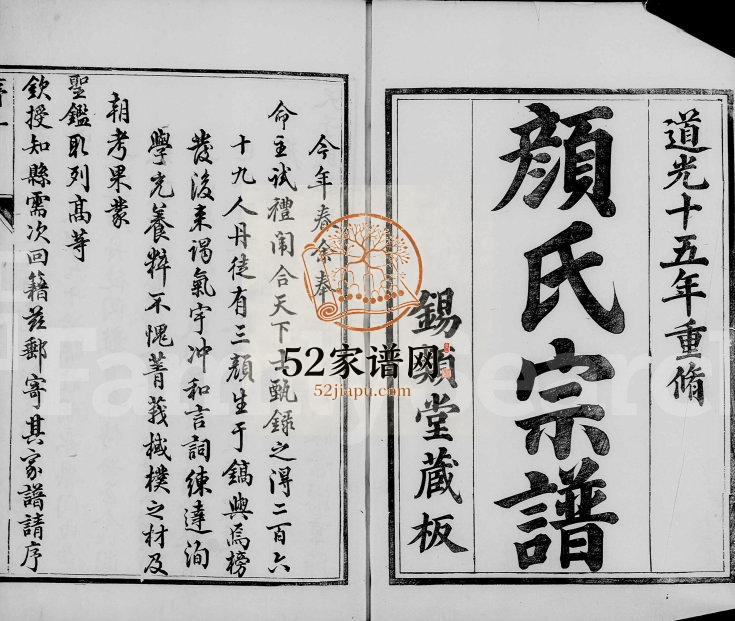 道光十五年重脩
顔氏宗譜
錫類堂藏板
今年春余奉
命主試禮闈合天下士甄録之得二百六
十九人丹徒有三顔生于鎬與焉榜
發後来謁氣宇冲和言詞練達洵
學充養粹不愧菁莪棫樸之材及
朝考果蒙
聖鑑取列髙等
欽授知縣需次回籍兹郵寄其家譜請序
52家谱网
52jiapu.com